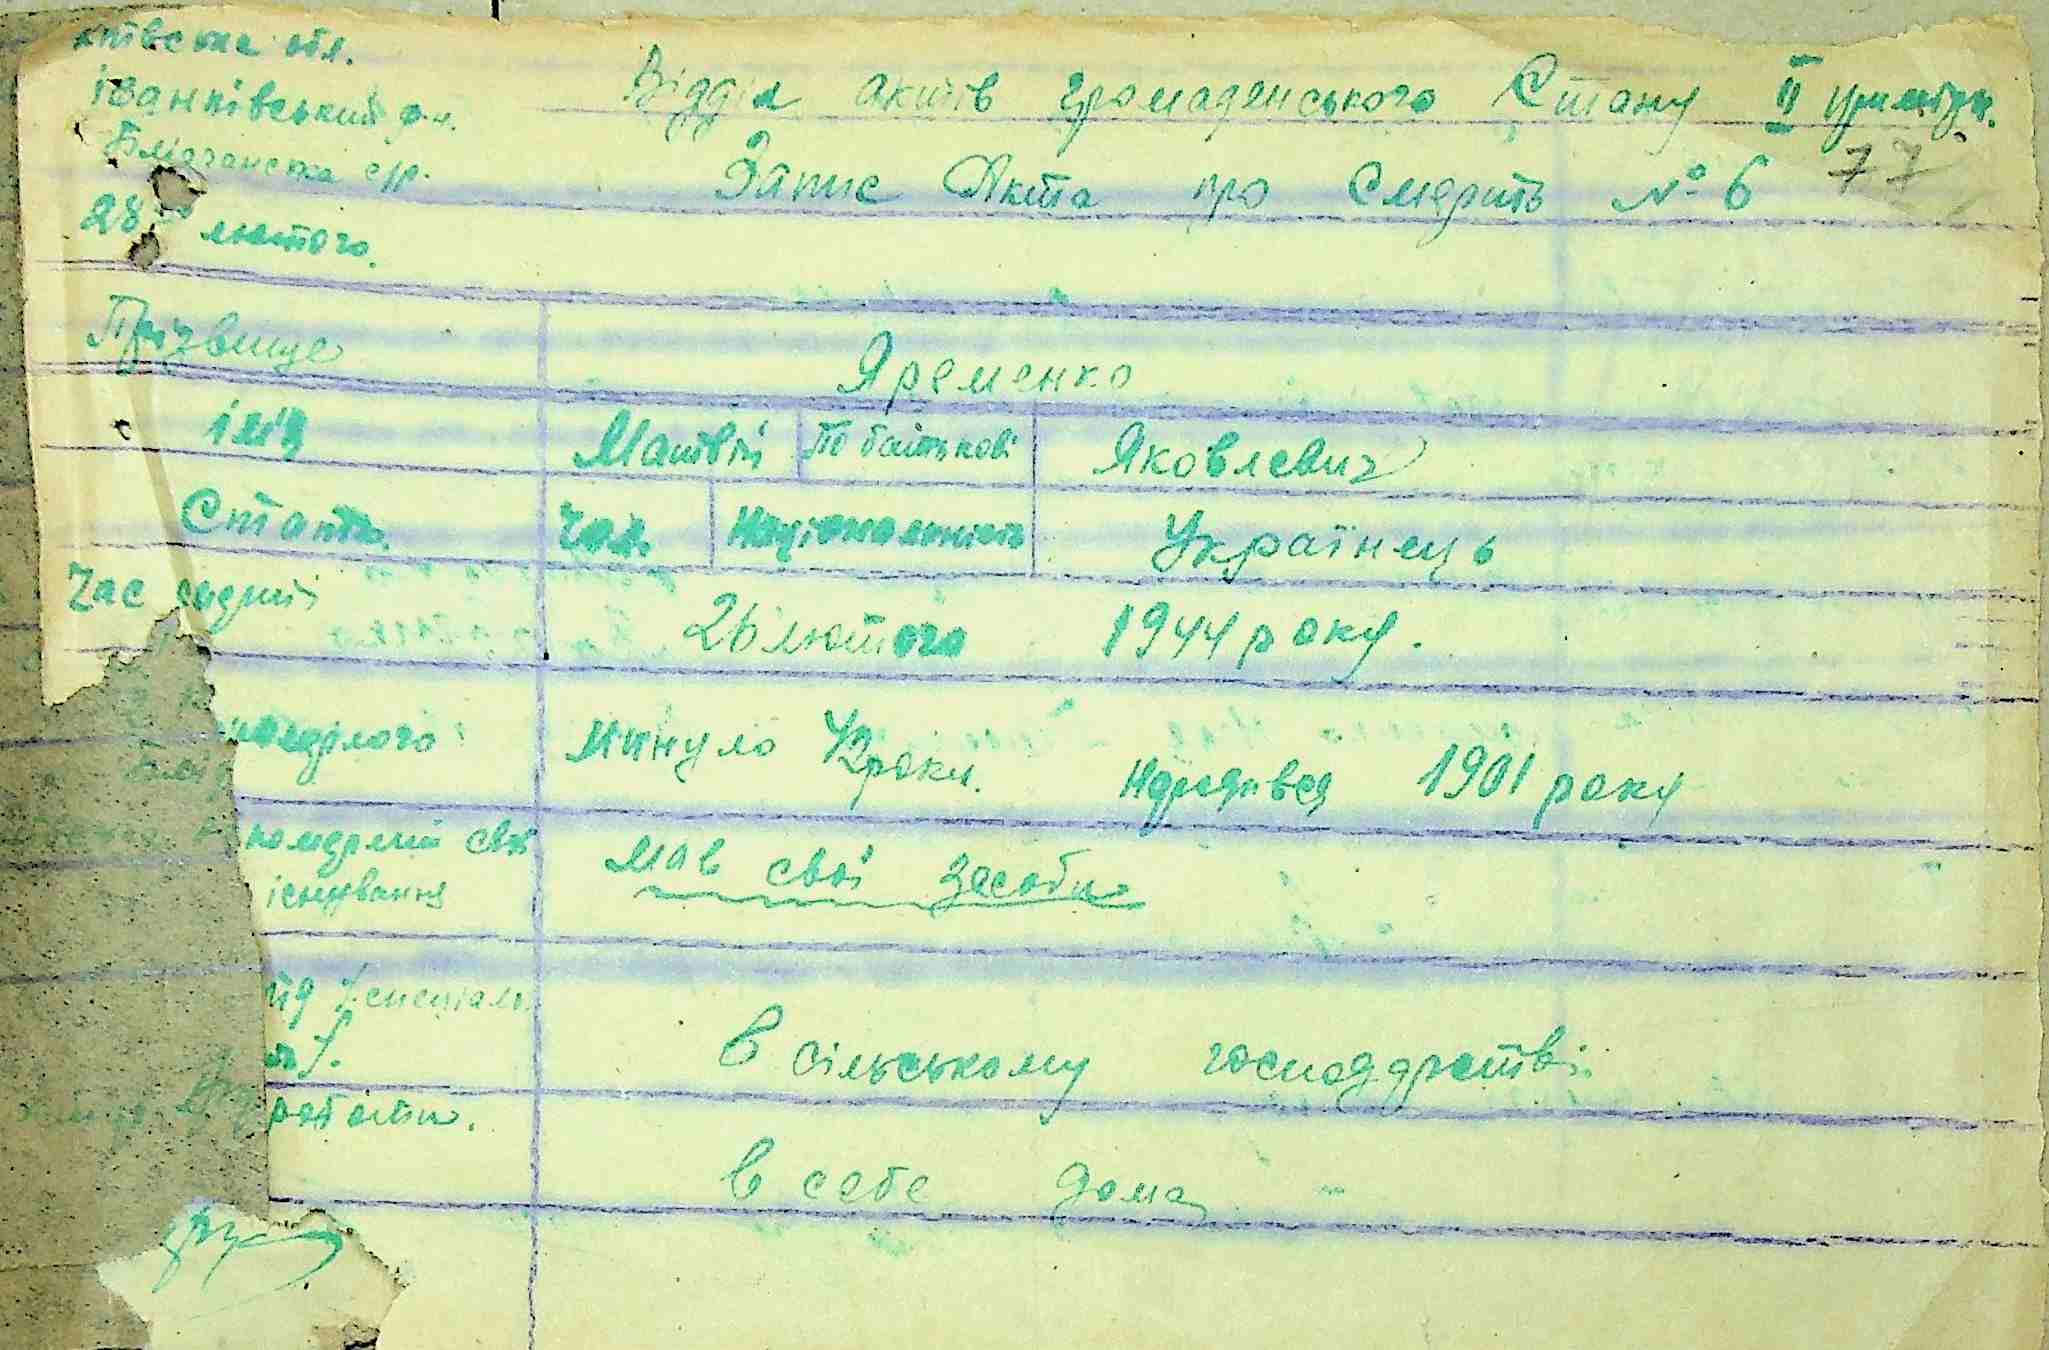 ївська обл.
Іванківський р-н.
с/р.
28 лютого.
Відділ актів громаденського Стану II примірн.
Запис Акта про Смерть № 6 77
Прізвище Яременко
імя Матвій По батькові Яковлевич
Стать. чол. Національність Українець
Час смерті 26 лютого 1944 року.
померлого минуло 42 роки. Народився 1901 року
померлий свої мав свої засоби
існування
спеціаль.
В сільському господарстві.
роботи.
в себе дома